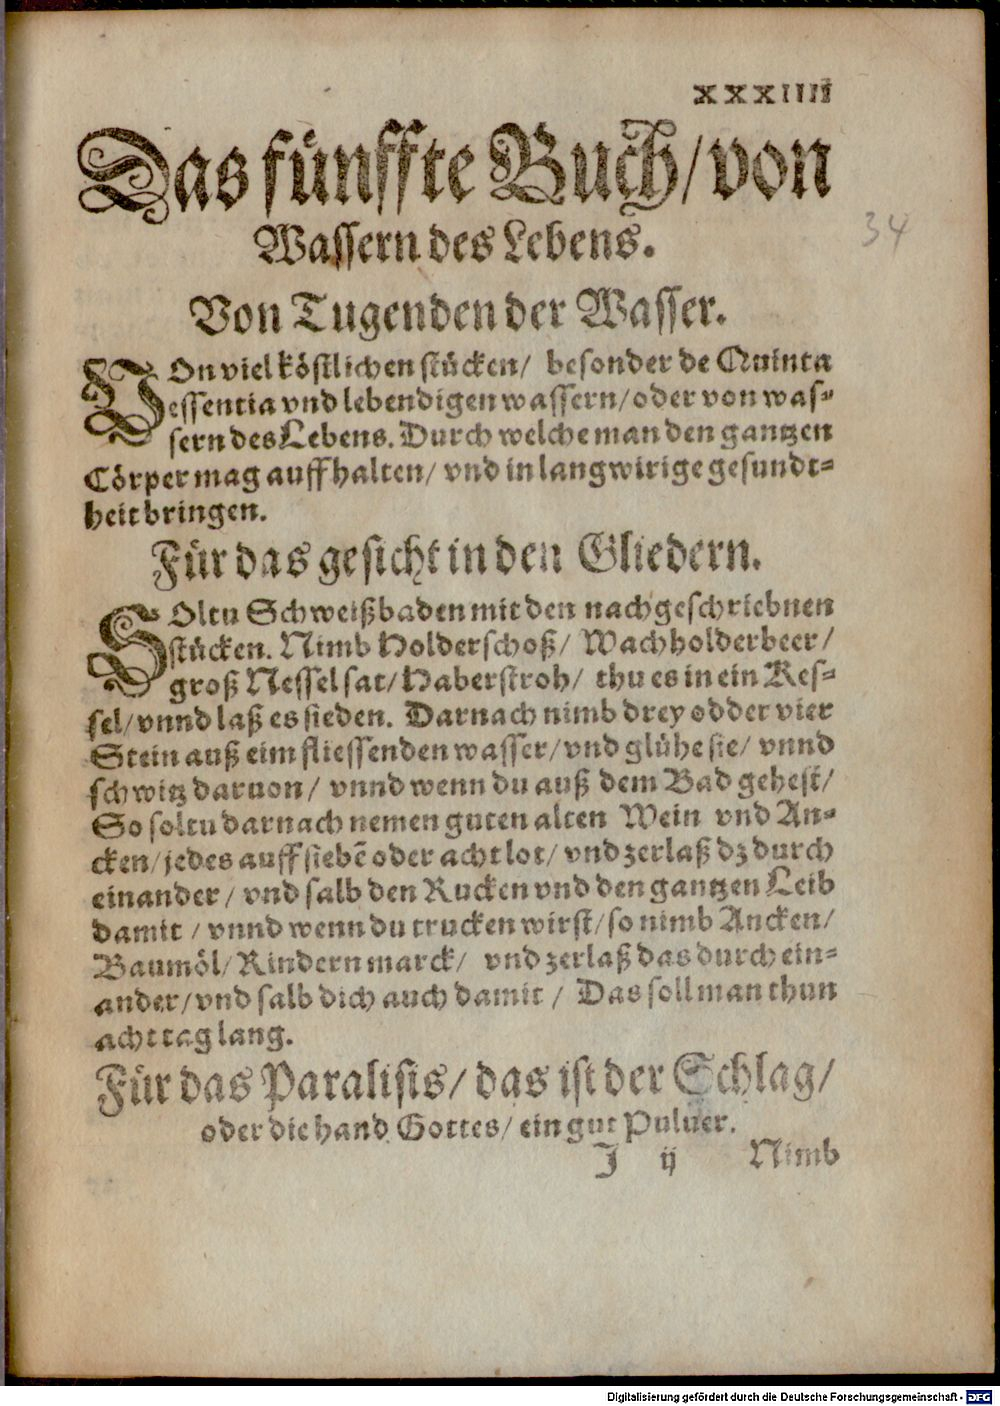 XXXIIII
Das fünffte Buch/ von
Wassern des Lebens.
34
Von Tugenden der Wasser.
VOn viel köstlichen stücken/ besonder de Quinta
essentia vnd lebendigen wassern/ oder von was-
sern des Lebens. Durch welche man den gantzen
Cörper mag auffhalten/ vnd in langwirige gesundt-
heit bringen.
Für das gesicht in den Gliedern.
SOltu Schweißbaden mit den nachgeschriebnen
stücken. Nimb Holderschoß/ Wachholderbeer/
groß Nessel sat/ Haberstroh/ thu es in ein Kes-
sel/ vnnd laß es sieden. Darnach nimb drey odder vier
Stein auß eim fliessenden wasser/ vnd glühe sie/ vnnd
schwitz daruon/ vnnd wenn du auß dem Bad gehest/
So soltu darnach nemen guten alten Wein vnd An-
cken/ jedes auff siebẽ oder acht lot/ vnd zerlaß dz durch
einander/ vnd salb den Rucken vnd den gantzen Leib
damit/ vnnd wenn du trucken wirst/ so nimb Ancken/
Baumöl/ Rindern marck/ vnd zerlaß das durch ein-
ander/ vnd salb dich auch damit/ Das soll man thun
acht tag lang.
Für das Paralisis/ das ist der Schlag/
oder die hand Gottes/ ein gut Puluer.
J ij Nimb
Digitalisierung gefördert durch die Deutsche Forschungsgemeinschaft - DFG